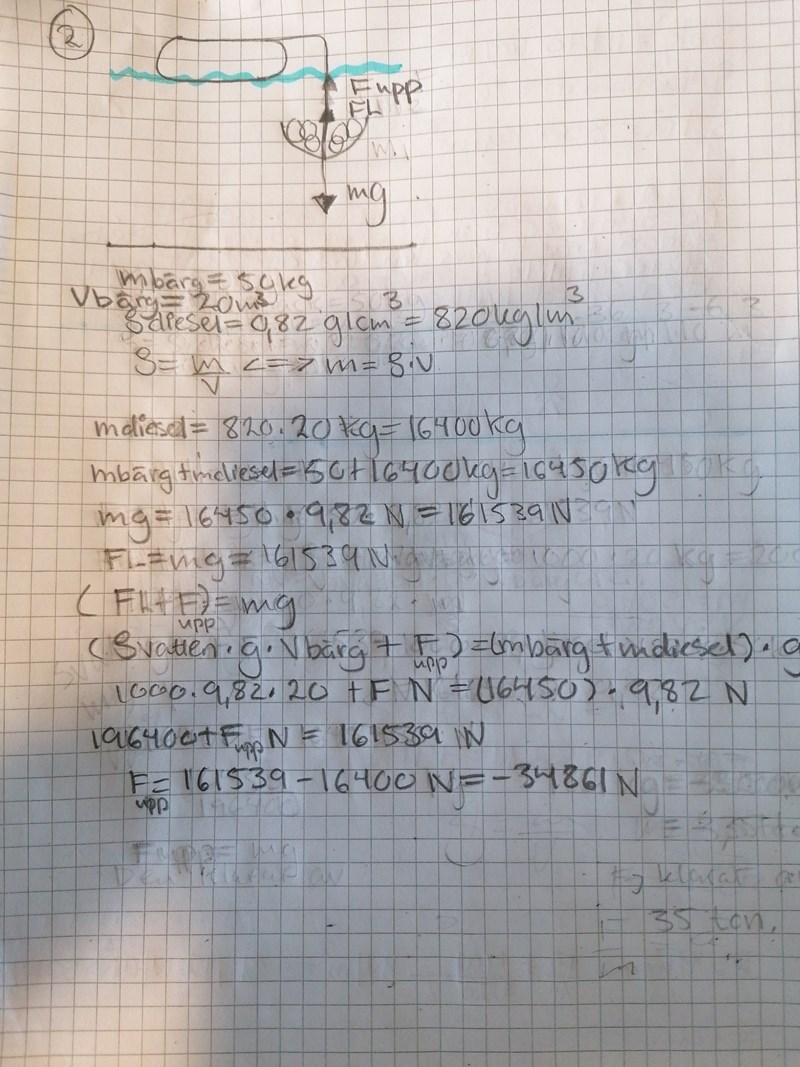 2
Fupp
FL
mg
mbärg = 50kg
Vbärg = 20m³
ϱdiesel = 0,82 g/cm³ = 820kg/m³
ϱ = m/V <=> m = ϱ·V
mdiesel = 820·20 kg = 16400kg
mbärg + mdiesel = 50+16400kg = 16450kg
mg = 16450 · 9,82 N = 161539 N
FL = mg = 161539 N
(FL + Fupp) = mg
(ϱvatten · g · Vbärg + Fupp) = (mbärg + mdiesel) · g
1000·9,82·20 + F N = (16450) · 9,82 N
196400 + Fupp N = 161539 N
Fupp = 161539 - 16400 N = -34861 N
35 ton.